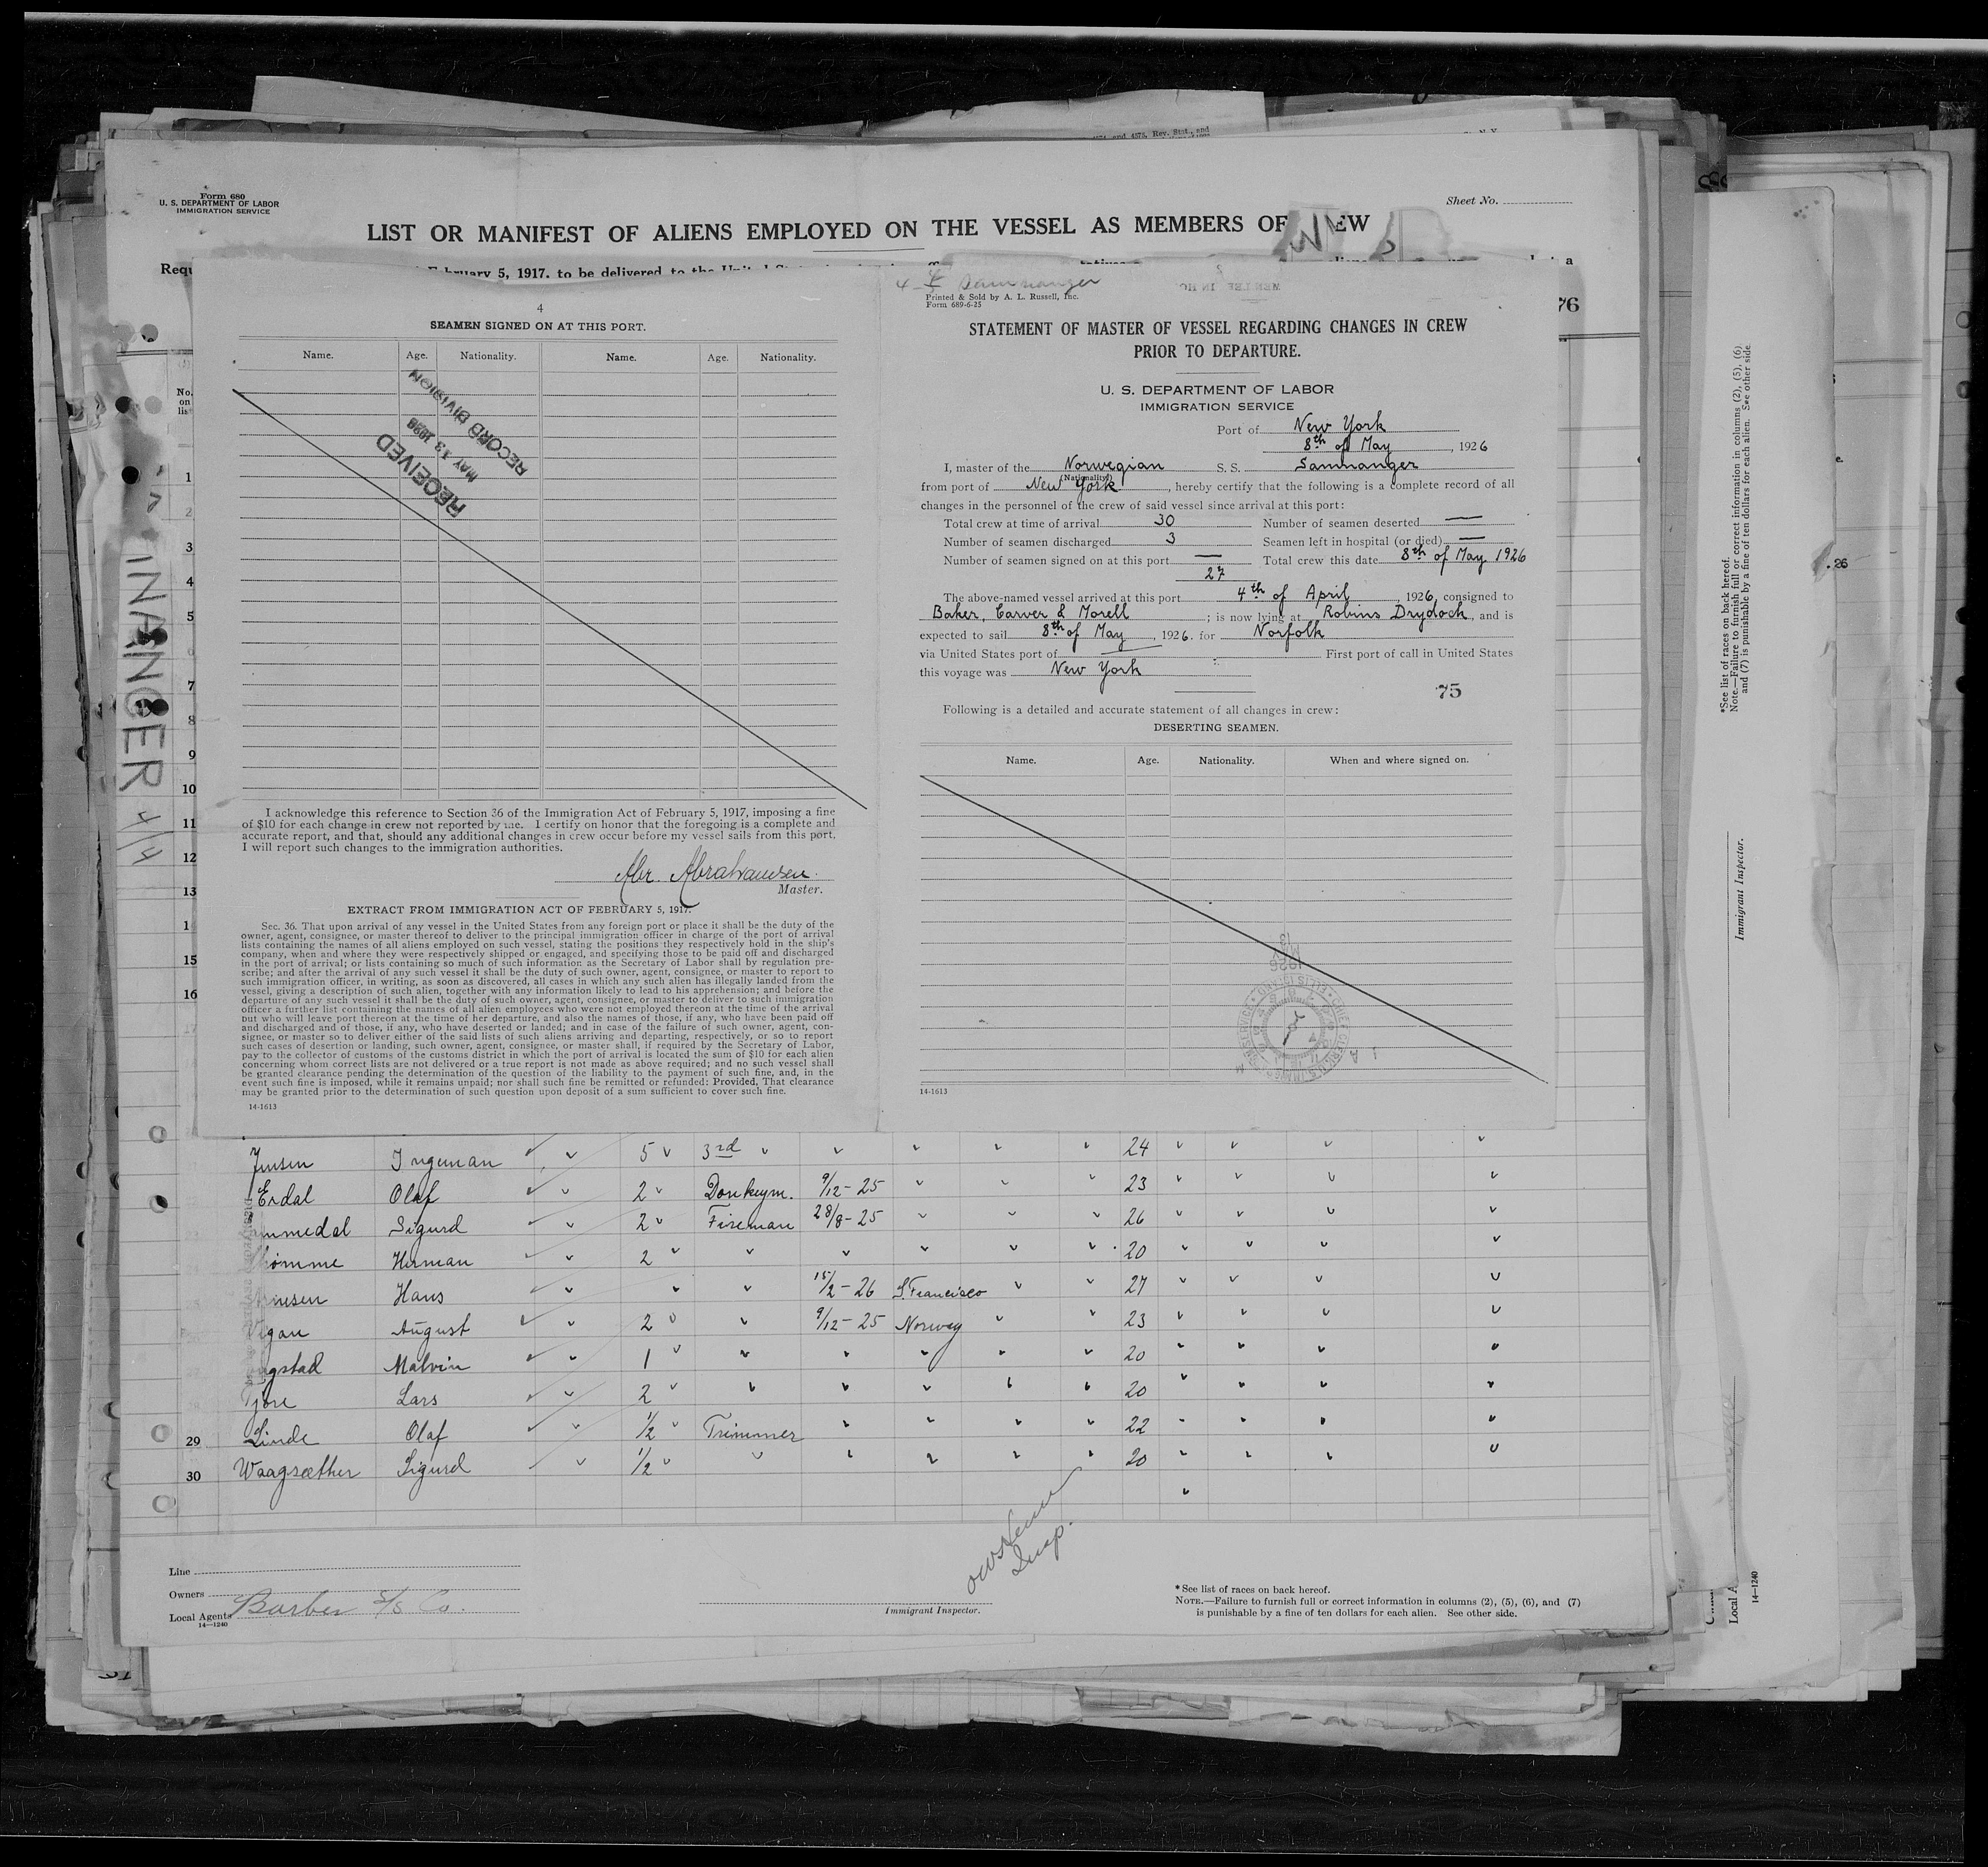 Form 680
U. S. DEPARTMENT OF LABOR
IMMIGRATION SERVICE
Sheet No.
LIST OR MANIFEST OF ALIENS EMPLOYED ON THE VESSEL AS MEMBERS OF EW
February 5, 1917, to be delivered to the
76
4
SEAMEN SIGNED ON AT THIS PORT.
Name. Age. Nationality. Name. Age. Nationality.
RECEIVED
MAY 13 1926
RECORD DIVISION
I acknowledge this reference to Section 36 of the Immigration Act of February 5, 1917, imposing a fine
of $10 for each change in crew not reported by me. I certify on honor that the foregoing is a complete and
accurate report, and that, should any additional changes in crew occur before my vessel sails from this port,
I will report such changes to the immigration authorities.
Abr. Abrahamsen.
Master.
EXTRACT FROM IMMIGRATION ACT OF FEBRUARY 5, 1917.
Sec. 36. That upon arrival of any vessel in the United States from any foreign port or place it shall be the duty of the
owner, agent, consignee, or master thereof to deliver to the principal immigration officer in charge of the port of arrival
lists containing the names of all aliens employed on such vessel, stating the positions they respectively hold in the ship's
company, when and where they were respectively shipped or engaged, and specifying those to be paid off and discharged
in the port of arrival; or lists containing so much of such information as the Secretary of Labor shall by regulation pre-
scribe; and after the arrival of any such vessel it shall be the duty of such owner, agent, consignee, or master to report to
such immigration officer, in writing, as soon as discovered, all cases in which any such alien has illegally landed from the
vessel, giving a description of such alien, together with any information likely to lead to his apprehension; and before the
departure of any such vessel it shall be the duty of such owner, agent, consignee, or master to deliver to such immigration
officer a further list containing the names of all alien employees who were not employed thereon at the time of the arrival
but who will leave port thereon at the time of her departure, and also the names of those, if any, who have been paid off
and discharged and of those, if any, who have deserted or landed; and in case of the failure of such owner, agent, con-
signee, or master so to deliver either of the said lists of such aliens arriving and departing, respectively, or so to report
such cases of desertion or landing, such owner, agent, consignee, or master shall, if required by the Secretary of Labor,
pay to the collector of customs of the customs district in which the port of arrival is located the sum of $10 for each alien
concerning whom correct lists are not delivered or a true report is not made as above required; and no such vessel shall
be granted clearance pending the determination of the question of the liability to the payment of such fine, and, in the
event such fine is imposed, while it remains unpaid; nor shall such fine be remitted or refunded: Provided, That clearance
may be granted prior to the determination of such question upon deposit of a sum sufficient to cover such fine.
14-1613
Samnanger
Printed & Sold by A. L. Russell, Inc.
Form 689-6-25
STATEMENT OF MASTER OF VESSEL REGARDING CHANGES IN CREW
PRIOR TO DEPARTURE.
U. S. DEPARTMENT OF LABOR
IMMIGRATION SERVICE
Port of New York
8th of May, 1926
I, master of the Norwegian S. S. Samnanger
(Nationality)
from port of New York, hereby certify that the following is a complete record of all
changes in the personnel of the crew of said vessel since arrival at this port:
Total crew at time of arrival 30 Number of seamen deserted —
Number of seamen discharged 3 Seamen left in hospital (or died) —
Number of seamen signed on at this port — Total crew this date 8th of May 1926
27
The above-named vessel arrived at this port 4th of April, 1926, consigned to
Baker, Carver & Morell; is now lying at Robins Drydock, and is
expected to sail 8th of May, 1926. for Norfolk
via United States port of — First port of call in United States
this voyage was New York
75
Following is a detailed and accurate statement of all changes in crew:
DESERTING SEAMEN.
Name. Age. Nationality. When and where signed on.
14-1613
No.
on
list
1
2
3
4
5
7
8
9
10
11
12
13
1
15
16
NANGER 4/4
Jensen Ingeman 5 3rd 24
Erdal Olaf 2 Donkeym. 9/12-25 23
Sigurd 2 Fireman 28/8-25 26
Herman 2 20
Hans 15/2-26 S. Francisco 27
Vigan August 2 9/12-25 Norway 23
gstad Malvin 1 20
Tjore Lars 2 20
29 Linde Olaf 1/2 Trimmer 22
30 Waagsæther Sigurd 1/2 20
Insp.
Line
Owners
Local Agents Barber S/S Co.
14-1240
Immigrant Inspector.
* See list of races on back hereof.
NOTE.—Failure to furnish full or correct information in columns (2), (5), (6), and (7)
is punishable by a fine of ten dollars for each alien. See other side.
*See list of races on back hereof.
Note.—Failure to furnish full or correct information in columns (2), (5), (6)
and (7) is punishable by a fine of ten dollars for each alien. See other side.
Immigrant Inspector.
Local A
14-1240
.26